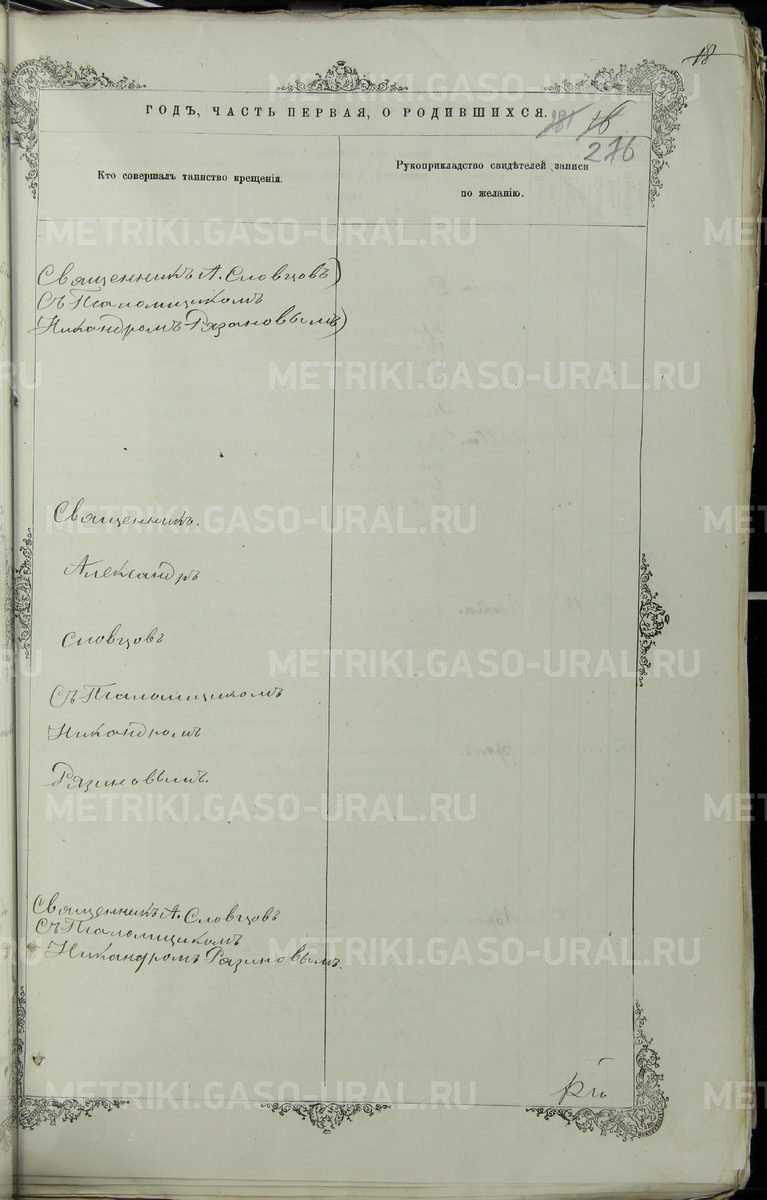 18
ГОДЪ, ЧАСТЬ ПЕРВАЯ, О РОДИВШИХСЯ.
181 16
276
Кто совершалъ таинство крещенія.
Рукоприкладство свидѣтелей записи
по желанію.
Священникъ А. Словцовъ)
Съ Псаломщикомъ
Никандромъ Рязановымъ)
Священникъ.
Александръ
Словцовъ
Съ Псаломщикомъ
Никандромъ
Рязиновымъ.
Священникъ А. Словцовъ
Съ Псаломщикомъ
Никандромъ Рязиновымъ.
METRIKI.GASO-URAL.RU